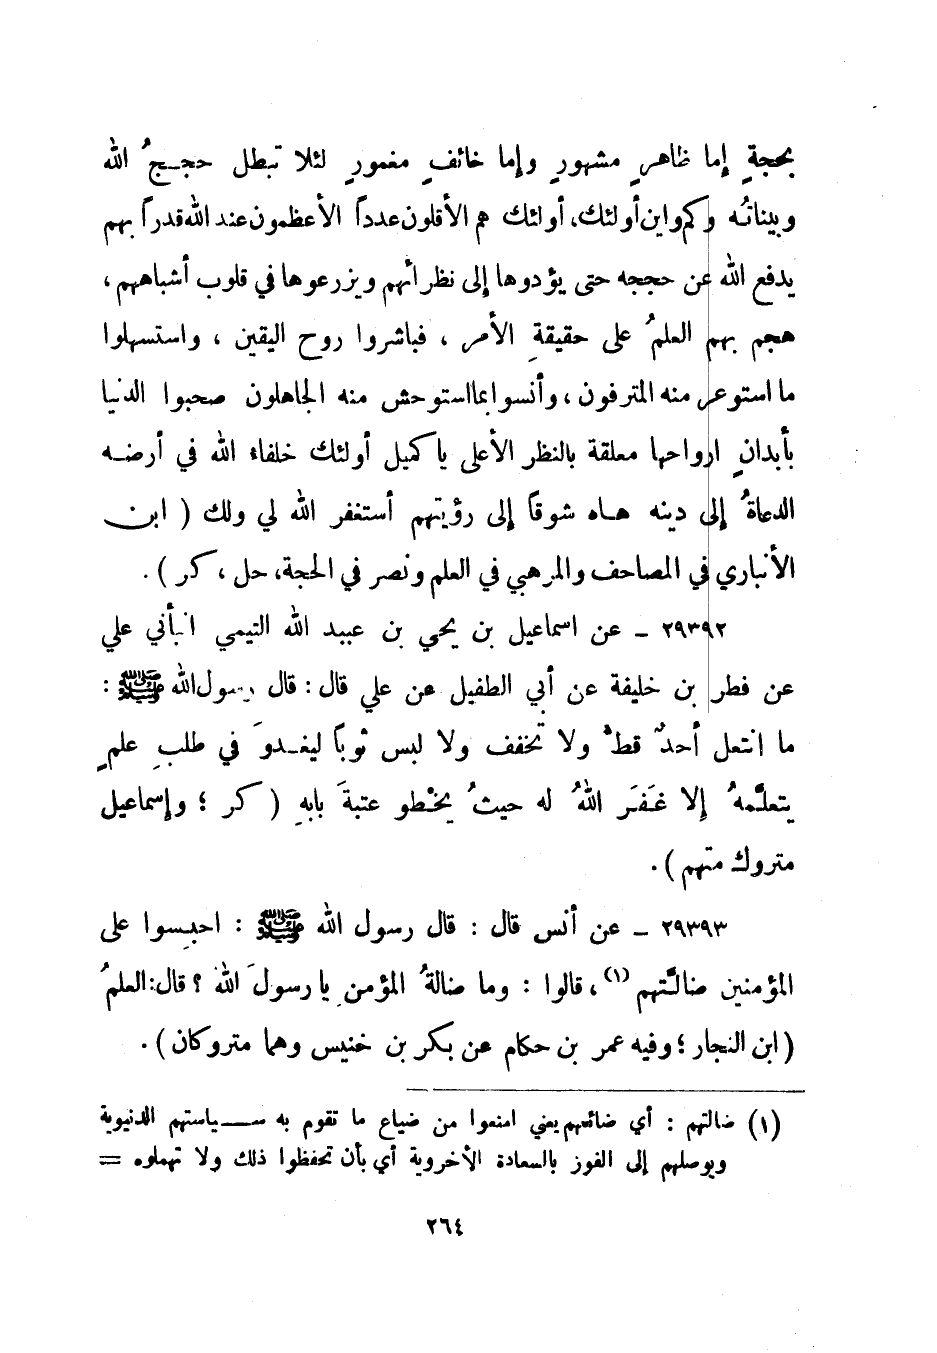 بحجةٍ إما ظاهرٍ مشهورٍ وإما خائفٍ مغمورٍ لئلا تبطل حججُ الله
وبيناتُه وكم وأين أولئك، أولئك هم الأقلون عدداً الأعظمون عند الله قدراً بهم
يدفع الله عن حججه حتى يؤدوها إلى نظرائهم ويزرعوها في قلوب أشباههم،
هجم بهم العلمُ على حقيقةِ الأمر ، فباشروا روح اليقين ، واستسهلوا
ما استوعر منه المترفون ، وأنسوا بما استوحش منه الجاهلون صحبوا الدنيا
بأبدانٍ ارواحها معلقة بالنظر الأعلى يا كميل أولئك خلفاء الله في أرضه
الدعاةُ إلى دينه هاه شوقاً إلى رؤيتهم أستغفر الله لي ولك ( ابن
الأنباري في المصاحف والمرهبي في العلم ونصر في الحجة، حل ، كر ) .
٢٩٣٩٢ ـ عن اسماعيل بن يحيى بن عبيد الله التيمي انبأني علي
عن فطر بن خليفة عن أبي الطفيل عن علي قال : قال رسول الله ﷺ :
ما انتعل أحدٌ قط ولا تخفف ولا لبس ثوباً ليغدوَ في طلبِ علمٍ
يتعلَّمهُ إلا غَفَرَ اللهُ له حيثُ يخْطو عتبةَ بابهِ ( كر ؛ وإسماعيل
متروك متهم ) .
٢٩٣٩٣ ـ عن أنس قال : قال رسول الله ﷺ : احبِسوا على
المؤمنين ضالَّتهم (١) ، قالوا : وما ضالةُ المؤمنِ يا رسولَ الله ؟ قال: العلمُ
( ابن النجار ؛ وفيه عمر بن حكام عن بكر بن خنيس وهما متروكان ) .
(١) ضالتهم : أي ضائعهم يعني امنعوا من ضياع ما تقوم به سياستهم الدنيوية
ويوصلهم إلى الفوز بالسعادة الأخروية أي بأن تحفظوا ذلك ولا تهملوه =
٢٦٤